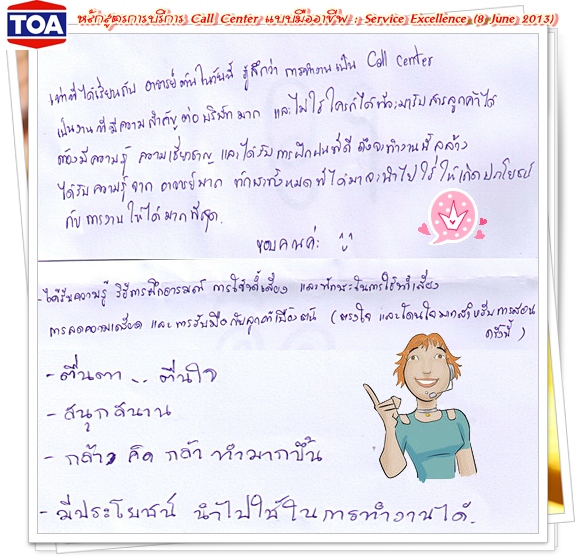 TOA
หลักสูตรการบริการ Call Center แบบมืออาชีพ : Service Excellence (8 June 2013)
เท่าที่ได้เรียนกับ อาจารย์ ในวันนี้ รู้สึกว่า การทำงานเป็น Call Center
เป็นงานที่มีความสำคัญต่อบริษัทมาก และไม่ใช่ใครก็ได้ที่จะมารับสายลูกค้าได้
ต้องมีความรู้ ความเชี่ยวชาญ และได้รับการฝึกฝนที่ดี ถึงจะทำงานนี้ได้
ได้รับความรู้จาก อาจารย์มาก ทักษะทั้งหมดที่ได้มาจะนำไปใช้ให้เกิดประโยชน์
กับการงานให้ได้มากที่สุด.
ขอบคุณค่ะ
- ได้รับความรู้ วิธีการฝึกอารมณ์ การใช้น้ำเสียง และทักษะในการใช้น้ำเสียง
การลดความเครียด และการรับมือกับลูกค้าเบื้องต้น (ตรงใจ และโดนใจมากสำหรับการสอน
ครั้งนี้)
- ตื่นตา .. ตื่นใจ
- สนุกสนาน
- กล้า คิด กล้า ทำมากขึ้น
- มีประโยชน์ นำไปใช้ในการทำงานได้.